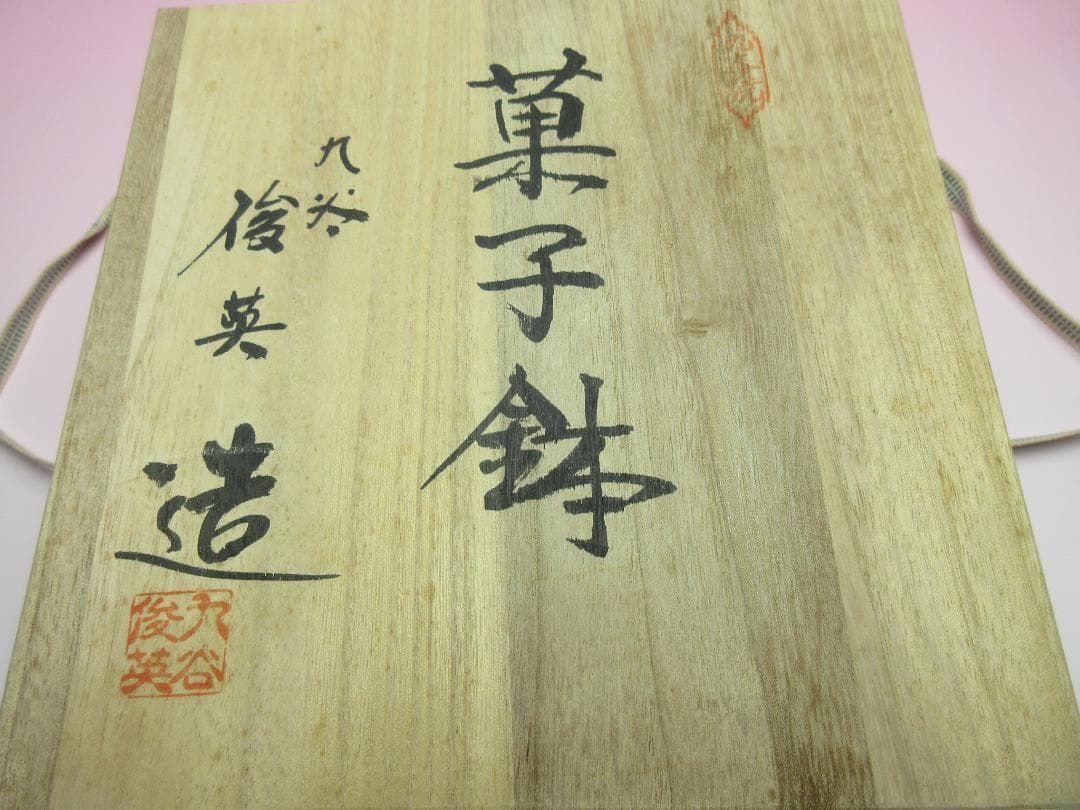 菓子鉢
九谷
俊英
造
九谷
俊英